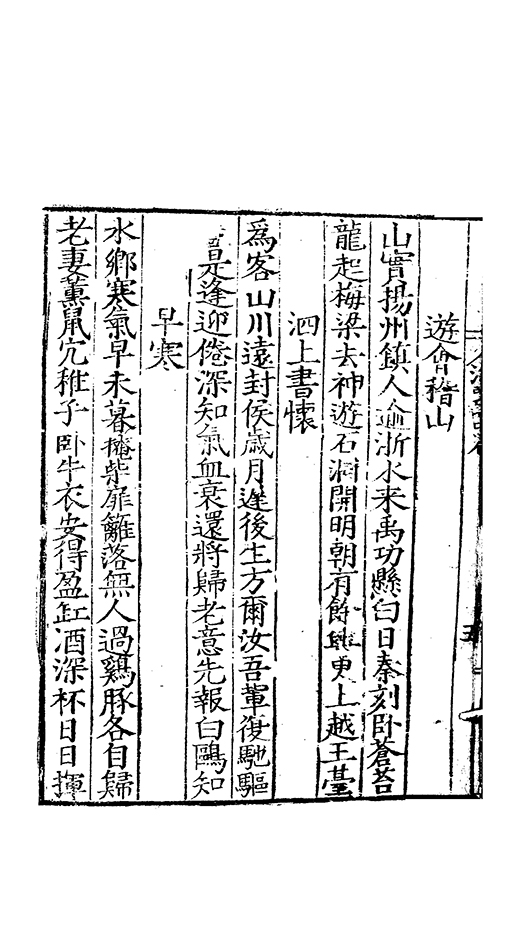 遊會稽山
山實揚州鎮人逾浙水来禹功懸白日秦刻卧蒼苔
龍起梅梁去神遊石洞開明朝有餘興更上越王臺
泗上書懷
為客山川遠封侯歲月遅後生方爾汝吾輩復馳驅
是逢迎倦深知氣血衰還將歸老意先報白鷗知
早寒
水鄉寒氣早未暮掩柴扉籬落無人過鷄豚各自歸
老妻薰鼠穴稚子卧牛衣安得盈缸酒深杯日日揮